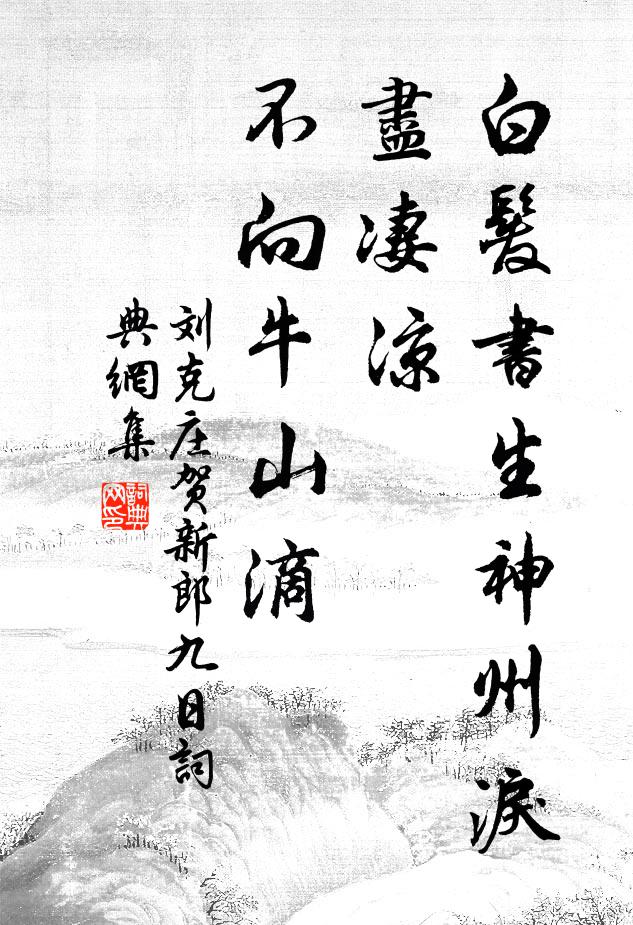 白髮書生神州淚
盡凄涼
不向牛山滴
刘克庄贺新郎九日詞
典網集
詞典网印